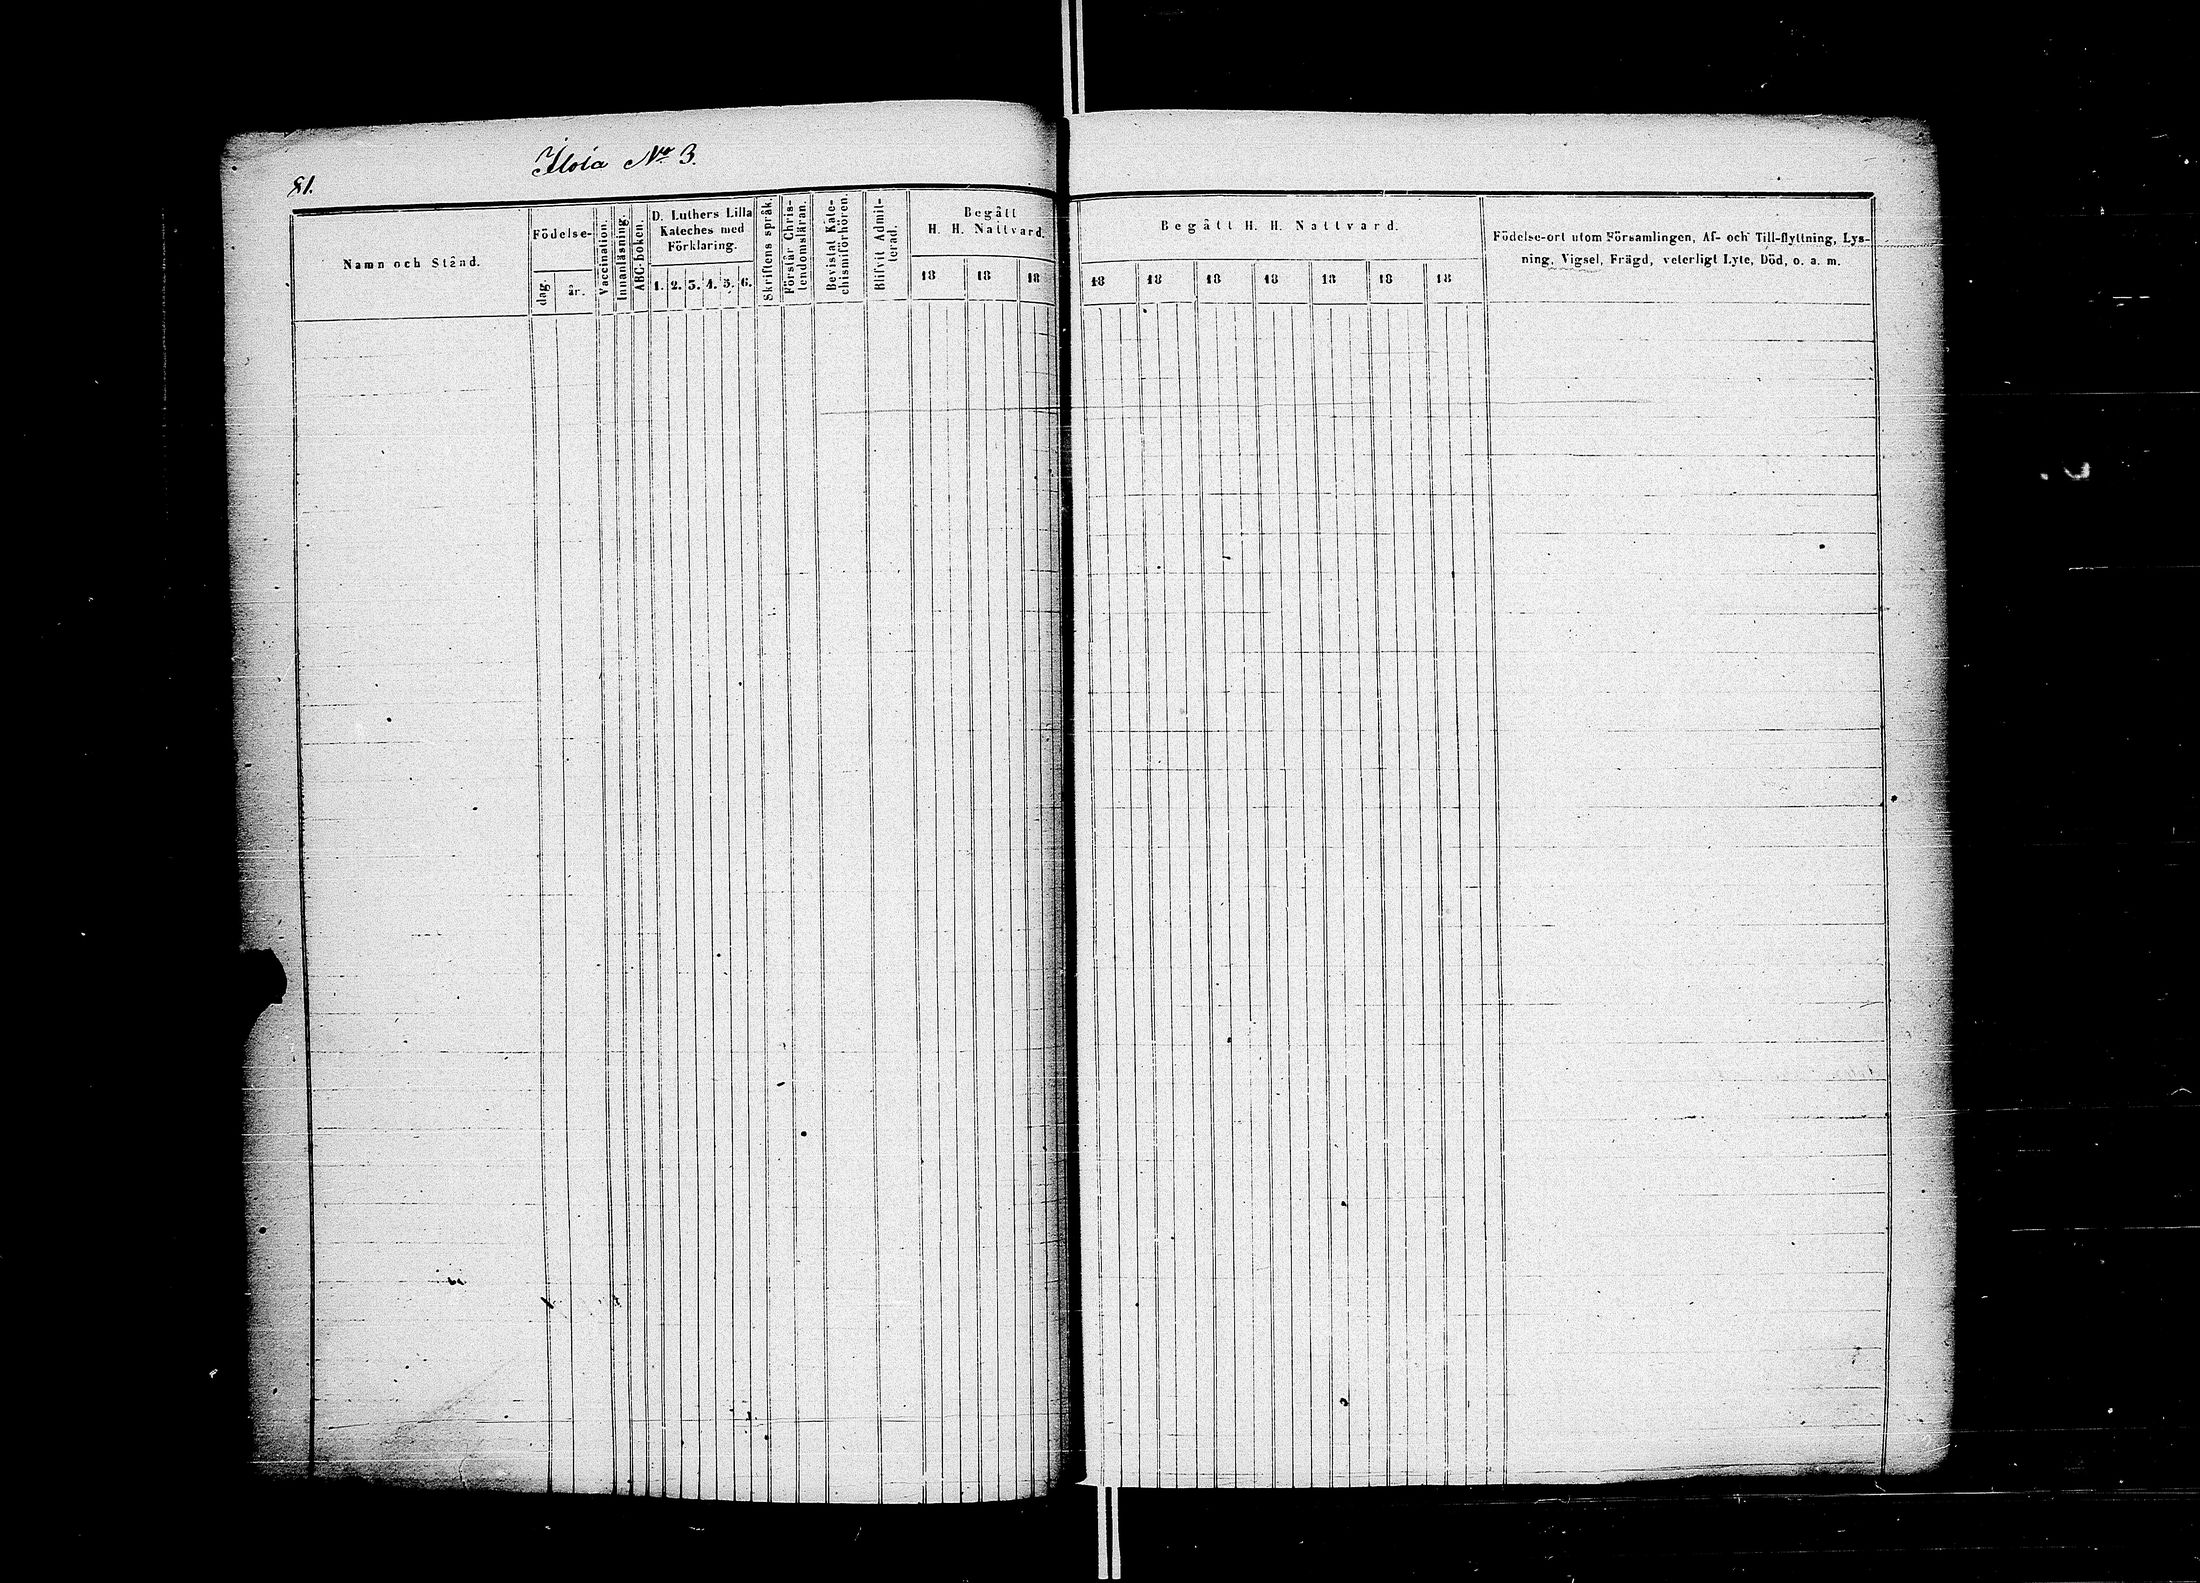 Iloia No 3.
81.
Namn och Stånd.
Födelse-
dag.
år.
Vaccination.
Innanläsning.
ABC-boken.
D. Luthers Lilla
Kateches med
Förklaring.
1. 2. 3. 4. 5. 6.
Skriftens språk.
Förstår Chris-
tendomsläran.
Bevistat Kate-
chismiförhören.
Blifvit Admit-
terad.
Begått
H. H. Nattvard.
18 18 18
Begått H. H. Nattvard.
18 18 18 18 18 18 18
Födelse-ort utom Församlingen, Af- och Till-flyttning, Lys-
ning, Vigsel, Frägd, veterligt Lyte, Död, o. a. m.